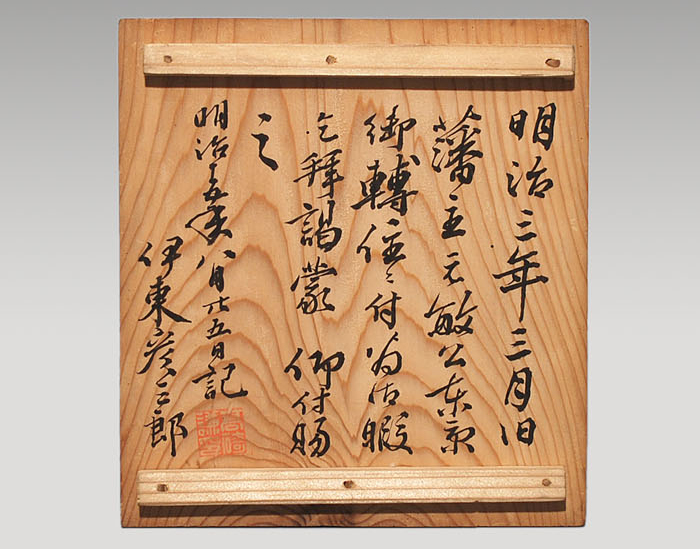 明治三年三月旧
藩主元敏公東京
御轉住ニ付為御暇
乞拝謁蒙 仰付賜
之
明治十五 八月廿五日記
伊東彦三郎